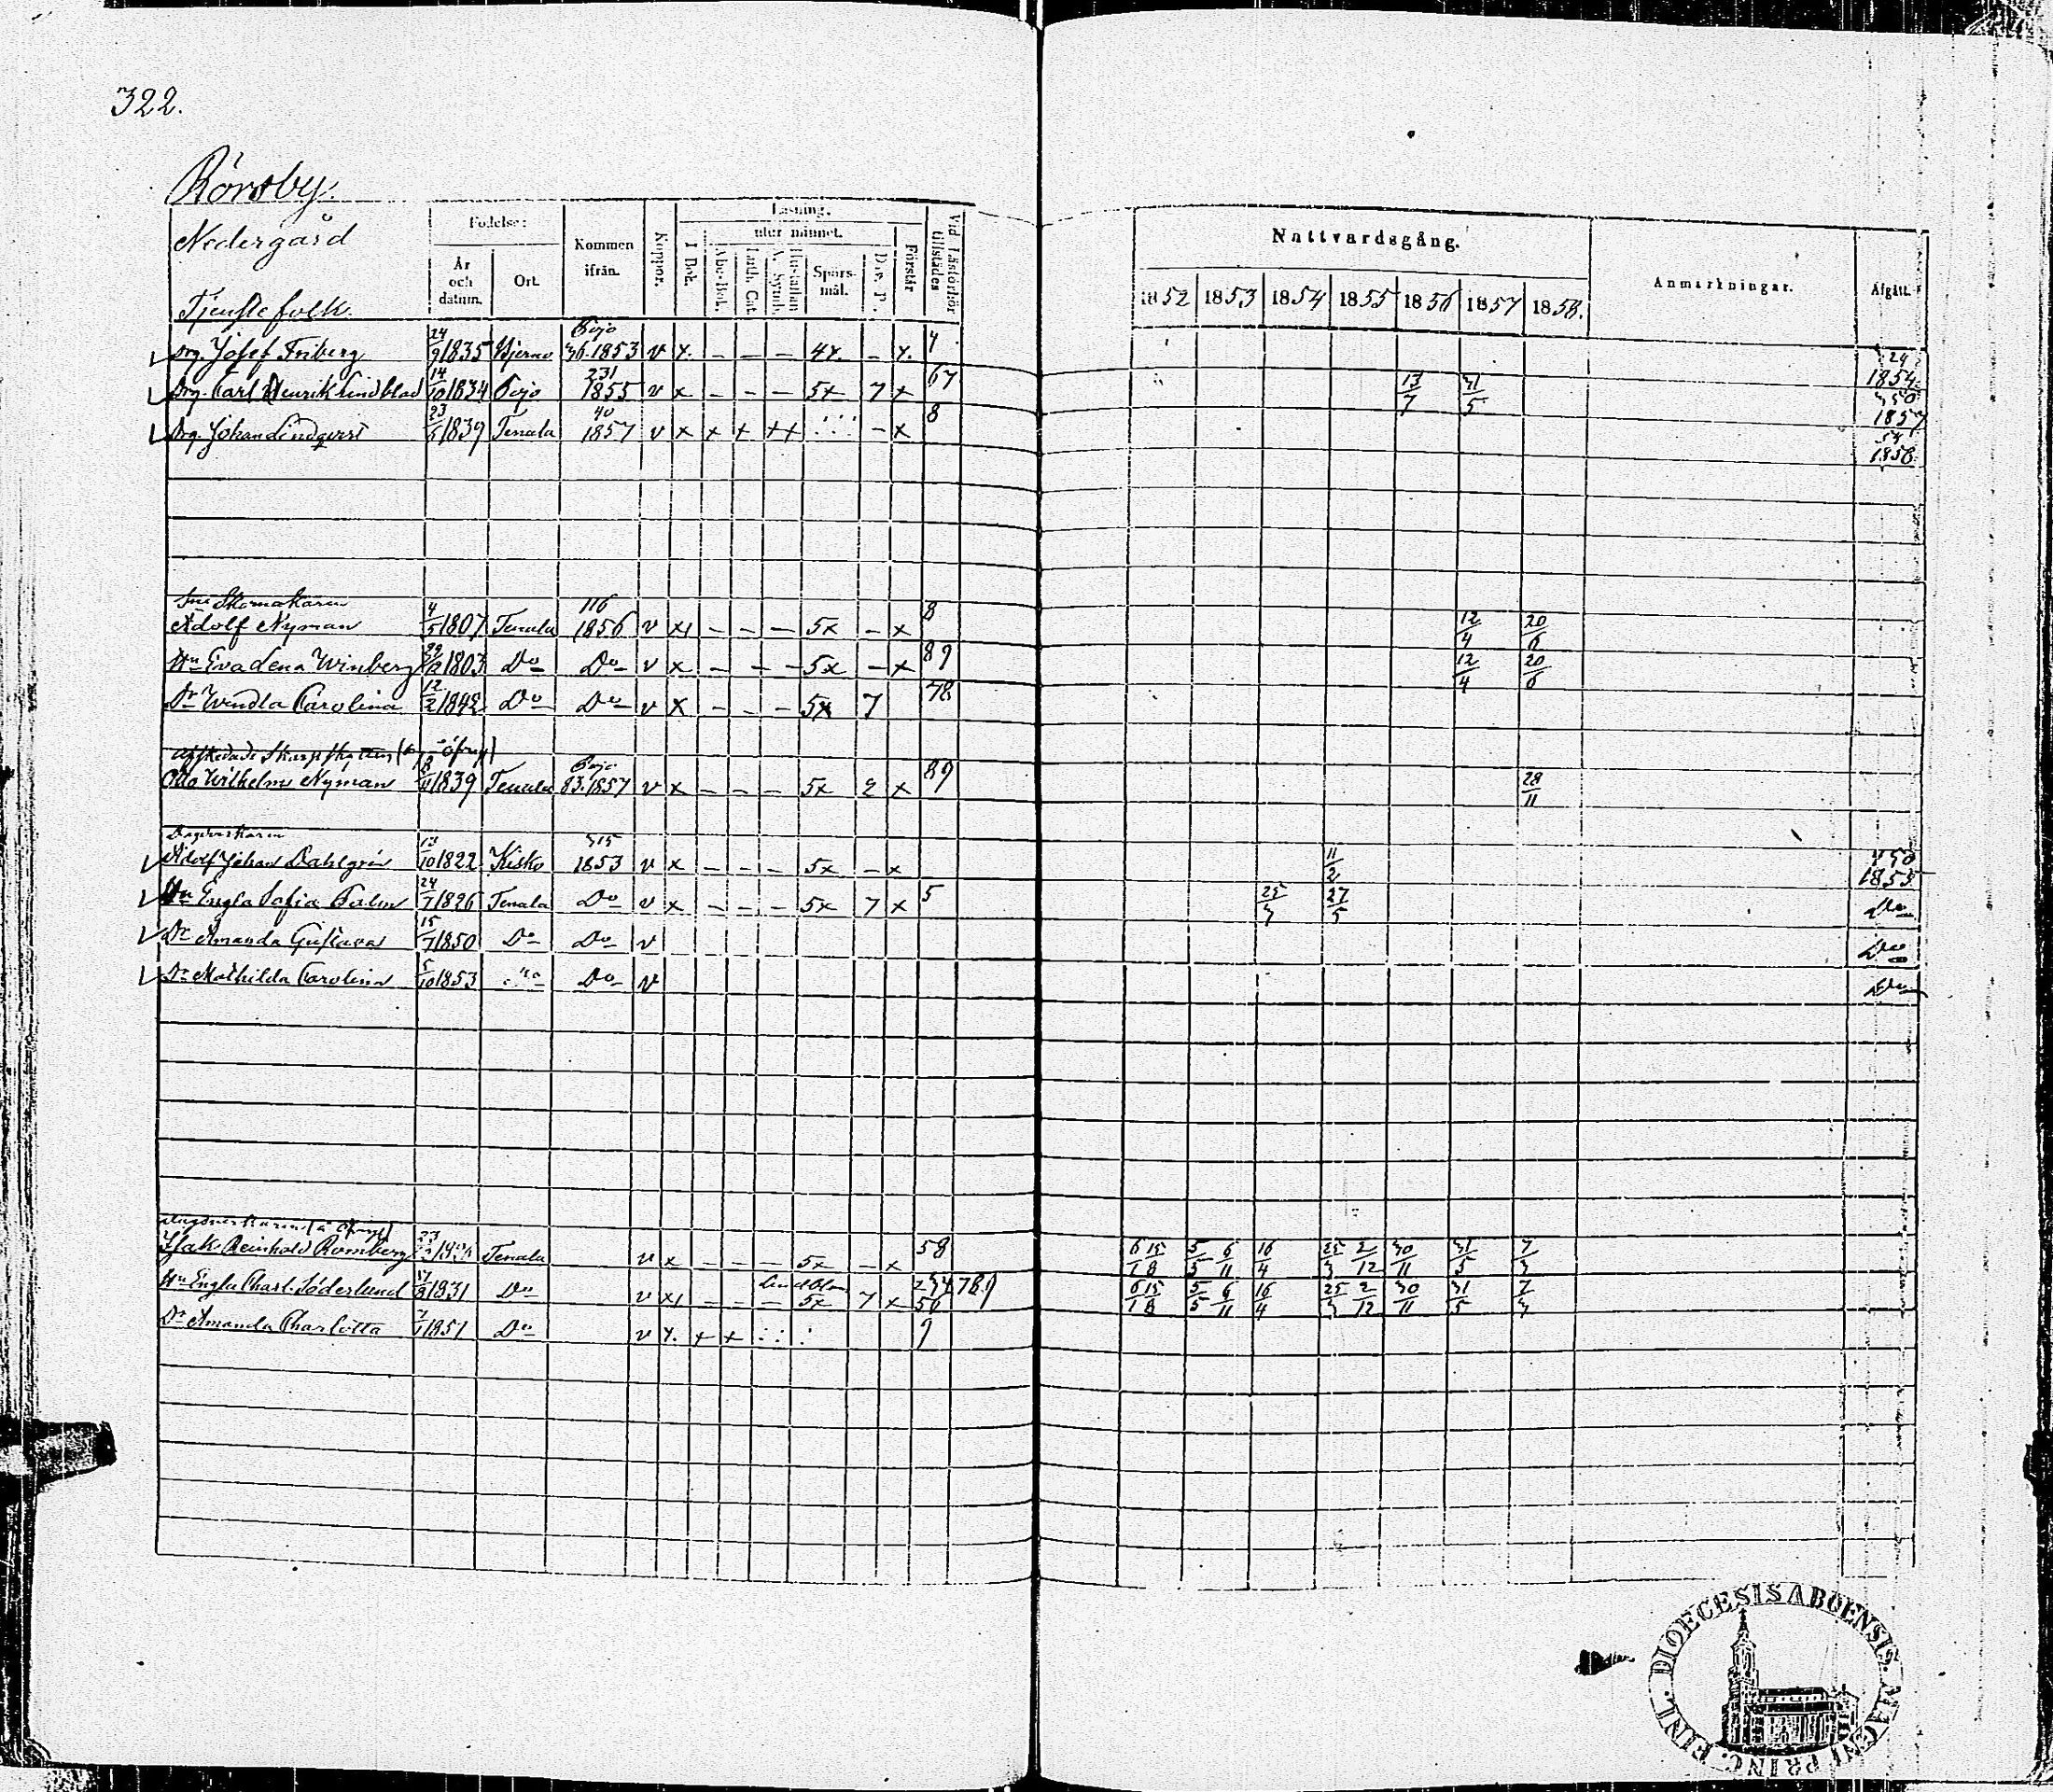 322.
Rörsby.
Nedergård
Tjenstefolk.
Födelse:
År och datum.
Ort.
Kommen ifrån.
Koppor.
Läsning.
utur minnet.
I Bok.
Abc-Bok.
Luth. Cat.
A. Symb.
Hustaflan
Spörsmål.
Dav. P.
Förstår
Vid Läsförhör tillstädes
Nattvardsgång.
1852 1853 1854 1855 1856 1857 1858.
Anmärkningar.
Afgått.
Drg. Josef Friberg 24/9 1835 Bjerno Pojo 36. 1853 v x. – – – 4x. – x. 4 24 1854.
Drg. Carl Henrik Lindblad 14/10 1834 Pojo 231 1855 v x – – – 5x 7 x 67 13/7 31/5 350 1857
Drg. Johan Lindqvist 23/5 1839 Tenala 40 1857 v x + + ++ – x 8 54 1858.
Skomakaren
Adolf Nyman 4/5 1807 Tenala 116 1856 v x – – – 5x – x 8 12/4 20/6
Hu Eva Lena Winberg 1803 Do Do v x – – – 5x – x 89 12/4 20/6
Dr Wendla Carolina 12/2 1842 Do Do v x – – – 5x 7 78
afskedade Skarpskytten
Otto Wilhelm Nyman 1839 Tenala Pojo 83. 1857 v x – – – 5x 2 x 89 28/11
Dagsverkaren
Adolf Johan Dahlgrén 13/10 1822 Kisko 315 1853 v x – – – 5x – x 11/2 1855
Hu Engla Sofia Palm 24/7 1826 Tenala Do v x – – – 5x 7 x 5 25/3 27/5 Do
Dr Amanda Gustava 15/7 1850 Do Do v Do
Dr Mathilda Carolina 5/10 1853 Do Do v Do
Dagsverkaren
Isak Reinhold Romberg Tenala v x – – – 5x – x 58 6/1 15/8 5/5 6/11 16/4 25/3 2/12 30/11 31/5 7/3
Hu Engla Charl. Söderlund 1831 Do v x – – – 5x 7 x 234789 56 6/1 15/8 5/5 6/11 16/4 25/3 2/12 30/11 31/5 7/3
Dr Amanda Charlotta 1851 Do v x. + + 9
DIOECESIS ABOENSIS. MAGNI PRINC. FINL.